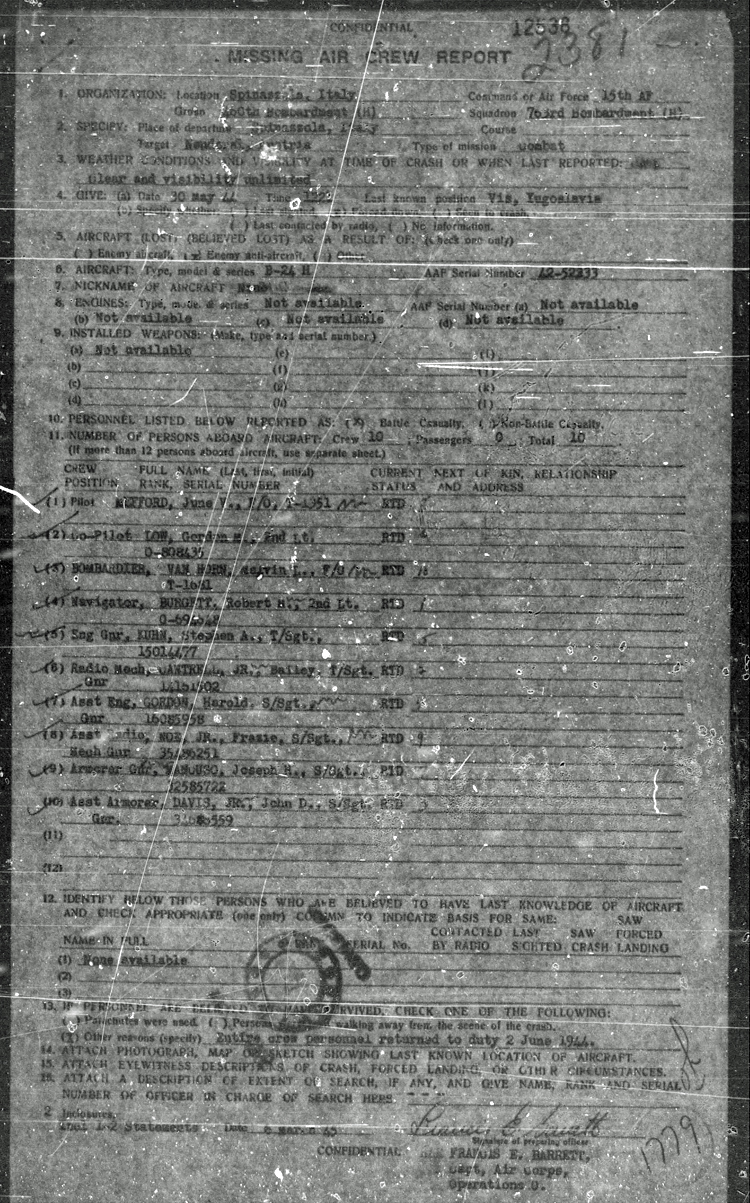 CONFIDENTIAL
12538
2381
MISSING AIR CREW REPORT
1. ORGANIZATION: Location Spinazzola, Italy Command or Air Force 15th AF
Group 460th Bombardment (H) Squadron 763rd Bombardment (H)
2. SPECIFY: Place of departure Spinazzola, Italy Course
Target Austria Type of mission Combat
3. WEATHER CONDITIONS AND VISIBILITY AT TIME OF CRASH OR WHEN LAST REPORTED:
Clear and visibility unlimited
4. GIVE: (a) Date 30 May 44 Time 1222 Last known position Vis, Yugoslavia
(b) Specify whether ( ) Last sighted, Forced down, ( ) Seen to crash,
( ) Last contacted by radio, ( ) No information.
5. AIRCRAFT (LOST) (BELIEVED LOST) AS A RESULT OF: (Check one only)
( ) Enemy aircraft, (x) Enemy anti-aircraft, ( ) Other
6. AIRCRAFT: Type, model & series B-24 H AAF Serial Number 42-52333
7. NICKNAME OF AIRCRAFT
8. ENGINES: Type, model & series Not available AAF Serial Number (a) Not available
(b) Not available (c) Not available (d) Not available
9. INSTALLED WEAPONS: (Make, type and serial number.)
(a) Not available (e) (i)
(b) (f) (j)
(c) (g) (k)
(d) (h) (l)
10. PERSONNEL LISTED BELOW REPORTED AS: (X) Battle Casualty, ( ) Non-Battle Casualty.
11. NUMBER OF PERSONS ABOARD AIRCRAFT: Crew 10 ; Passengers 0 ; Total 10
(If more than 12 persons aboard aircraft, use separate sheet.)
CREW FULL NAME (Last, first, initial) CURRENT NEXT OF KIN, RELATIONSHIP
POSITION RANK, SERIAL NUMBER STATUS AND ADDRESS
(1) Pilot June V., F/O, RTD
(2) Co-Pilot LOW, Gordon 2nd Lt. RTD
O-808435
(3) BOMBARDIER, VAN HORN, Melvin L., F/O RTD
(4) Navigator, BURGETT, Robert H., 2nd Lt. RTD
(5) Eng Gnr, KUHN, Stephen A., T/Sgt., RTD
15014477
(6) Radio Mech, CANTRELL, JR., Bailey, T/Sgt. RTD
Gnr
(7) Asst Eng, GORDON, Harold, S/Sgt., RTD
Gnr 16085958
(8) Asst Radio, NOE, JR., Frazie, S/Sgt., RTD
Mech Gnr 35486251
(9) Armorer Gnr, Joseph H., S/Sgt., RTD
12585722
(10) Asst Armorer, DAVIS, JR., John D., S/Sgt. RTD
Gnr.
(11)
(12)
12. IDENTIFY BELOW THOSE PERSONS WHO ARE BELIEVED TO HAVE LAST KNOWLEDGE OF AIRCRAFT
AND CHECK APPROPRIATE (one only) COLUMN TO INDICATE BASIS FOR SAME: SAW
CONTACTED LAST SAW FORCED
NAME IN FULL SERIAL No. BY RADIO SIGHTED CRASH LANDING
(1) None available
(2)
(3)
13. IF PERSONNEL ARE BELIEVED TO HAVE SURVIVED, CHECK ONE OF THE FOLLOWING:
( ) Parachutes were used, ( ) Persons walking away from the scene of the crash.
(X) Other reasons (specify) Entire crew personnel returned to duty 2 June 1944.
14. ATTACH PHOTOGRAPH, MAP OR SKETCH SHOWING LAST KNOWN LOCATION OF AIRCRAFT.
15. ATTACH EYEWITNESS DESCRIPTIONS OF CRASH, FORCED LANDING, OR OTHER CIRCUMSTANCES.
16. ATTACH A DESCRIPTION OF EXTENT OF SEARCH, IF ANY, AND GIVE NAME, RANK AND SERIAL
NUMBER OF OFFICER IN CHARGE OF SEARCH HERE. - - -
2 Inclosures:
Incl 1-2 Statements Date March 45
Signature of preparing officer
CONFIDENTIAL FRANCIS E. BARRETT,
Capt, Air Corps,
Operations O.
1779